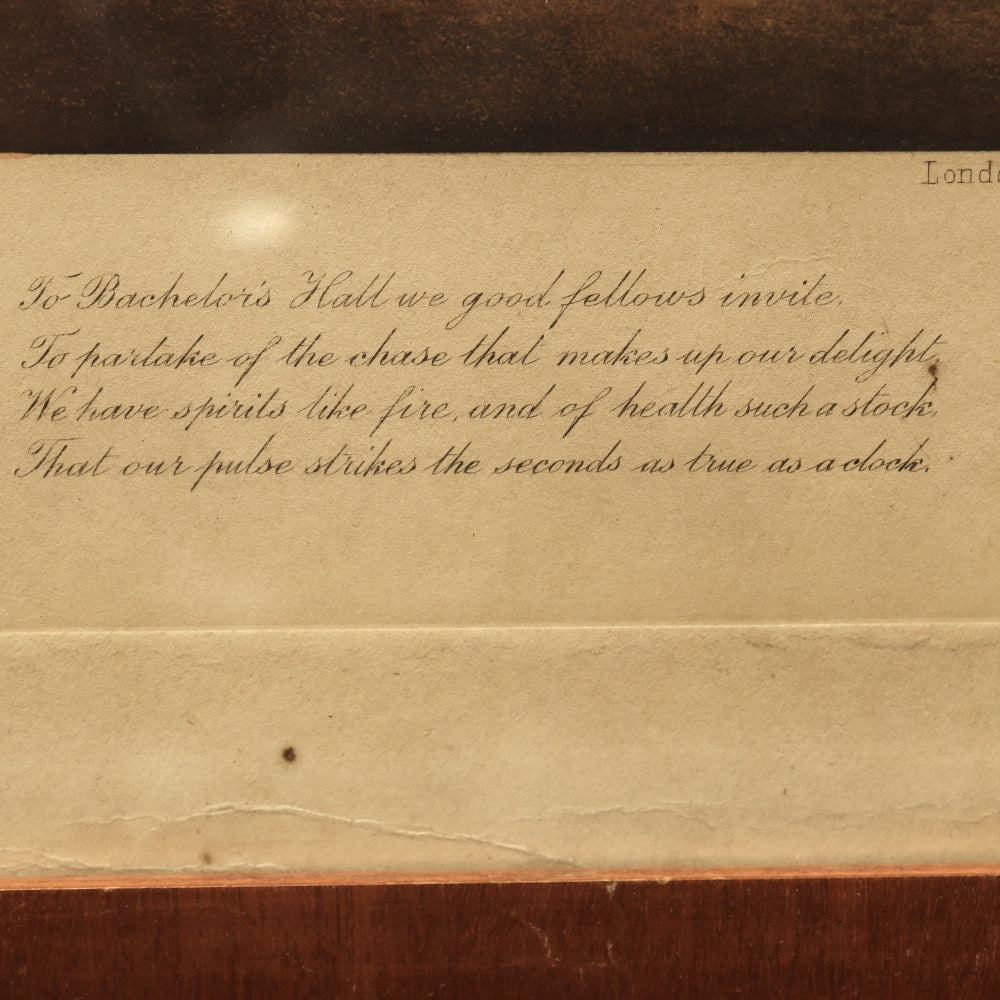 Londo
To Bachelor's Hall we good fellows invite,
To partake of the chase that makes up our delight,
We have spirits like fire, and of health such a stock,
That our pulse strikes the seconds as true as a clock.